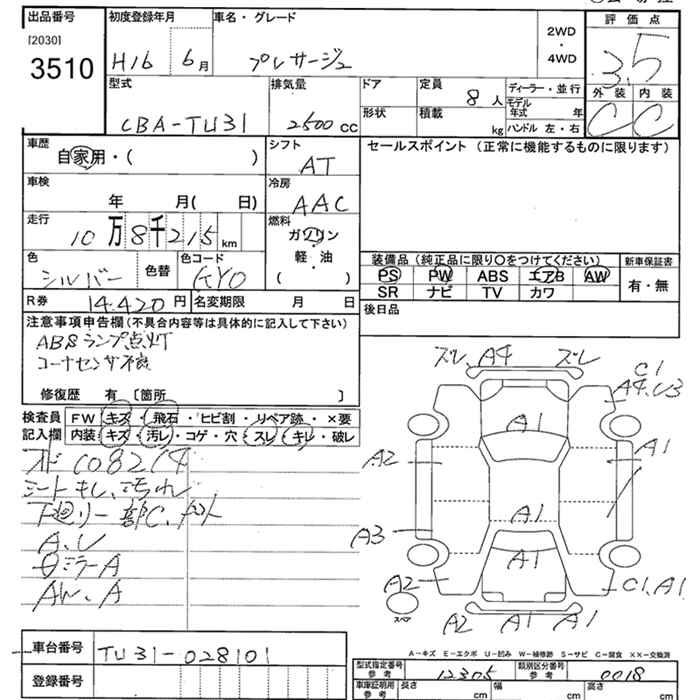 出品番号 初度登録年月 車名・グレード 2WD・4WD 評価点
[2030]
3510 H16 6月 プレサージュ 3.5
外装 内装
C C
型式 排気量 ドア 定員 8人 ディーラー・並行
モデル年式 年
CBA-TU31 2500cc 形状 積載 kg ハンドル 左・右
車歴 シフト セールスポイント (正常に機能するものに限ります)
自家用・( ) AT
車検 冷房
年 月( 日) AAC
走行 燃料
10万8千215km ガソリン
軽・油
( )
色 色替 色コード 装備品 (純正品に限り○をつけてください) 新車保証書
シルバー KY0 PS PW ABS エアB AW 有・無
SR ナビ TV カワ
R券 14.420円 名変期限 月 日 後日品
注意事項申告欄 (不具合内容等は具体的に記入して下さい)
ABSランプ点灯
コーナセンサ不良
修復歴 有 〔箇所 〕
検査員 FW キズ・飛石・ヒビ割・リペア跡・×要
記入欄 内装 キズ・汚レ・コゲ・穴・スレ・キレ・破レ
シートキレ、汚れ
下廻リ一部C、
A、U
ミラーA
AW、A
ズレ、A4 ズレ
C1
A4、U3
A1
A2 A1
A1
A3
A1
A2 C1、A1
スペア
A2 A1 A1
A-キズ E-エクボ U-凹み W-補修跡 S-サビ C-腐食 ××-交換済
車台番号 TU31-028101
型式指定番号 参考 12305 類別区分番号 参考 0018
登録番号
車庫証明用 参考 長さ cm 幅 cm 高さ cm